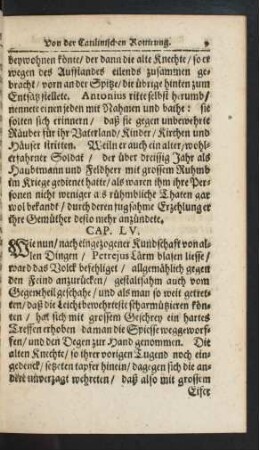 Von der Catilinischen Rottirung. 9
beywohnen könte/ der dann die alte Knechte/ so er
wegen des Aufstandes eilends zusammen ge-
bracht/ vorn an der Spitze/ die übrige hinten zum
Entsatz stellete. Antonius ritte selbst herumb/
nennete einen jeden mit Nahmen und baiht: sie
solten sich erinnern/ daß sie gegen unbewehrte
Räuber für ihr Vaterland/ Kinder/ Kirchen und
Häuser stritten. Weiln er auch ein alter/ wohl-
erfahrner Soldat/ der über dreissig Jahr als
Haubtmann und Feldherr mit grossem Ruhmb
im Kriege gedienet hatte/ als waren ihm ihre Per-
sonen nicht weniger als rühmliche Thaten gar
wol bekandt/ durch deren ruhmsahme Erzehlung er
ihre Gemüther desto mehr anzündete.
CAP. LV.
Wie nun/ nach eingezogener Kundschaft von al-
len Dingen/ Petrejus Lärm blasen liesse/
ward das Volck befehliget/ allgemählich gegen
den Feind anzurücken/ gestaltsahm auch vom
Gegentheil geschahe/ und als man so weit getretten/
daß die Leichtbewehreten scharmützieren kön-
ten/ hat sich mit grossem Geschrey ein hartes
Treffen erhoben da man die Spiesse weggeworf-
fen/ und den Degen zur Hand genommen. Die
alten Knechte/ so ihrer vorigen Tugend noch ein-
gedenck/ setzeten tapfer hinein/ dagegen sich die an-
dere unverzagt wehreten/ daß also mit grossem
Eifer